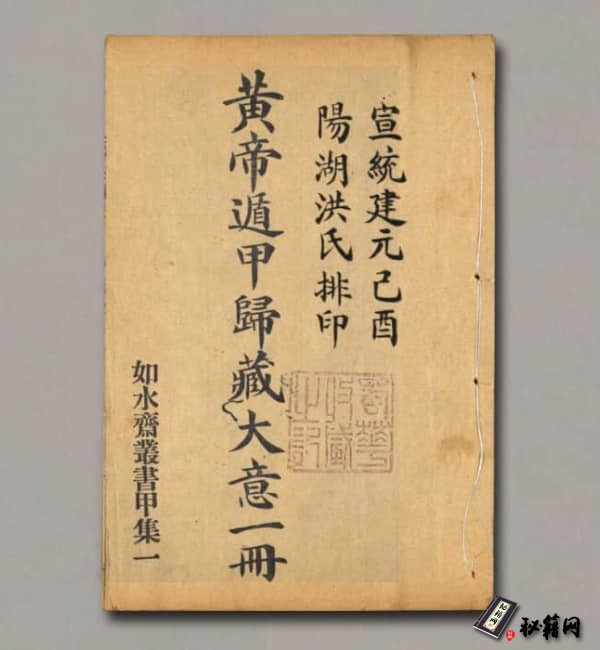 宣統建元己酉
陽湖洪氏排印
黃帝遁甲歸藏大意一冊
如水齋叢書甲集一
秘籍网